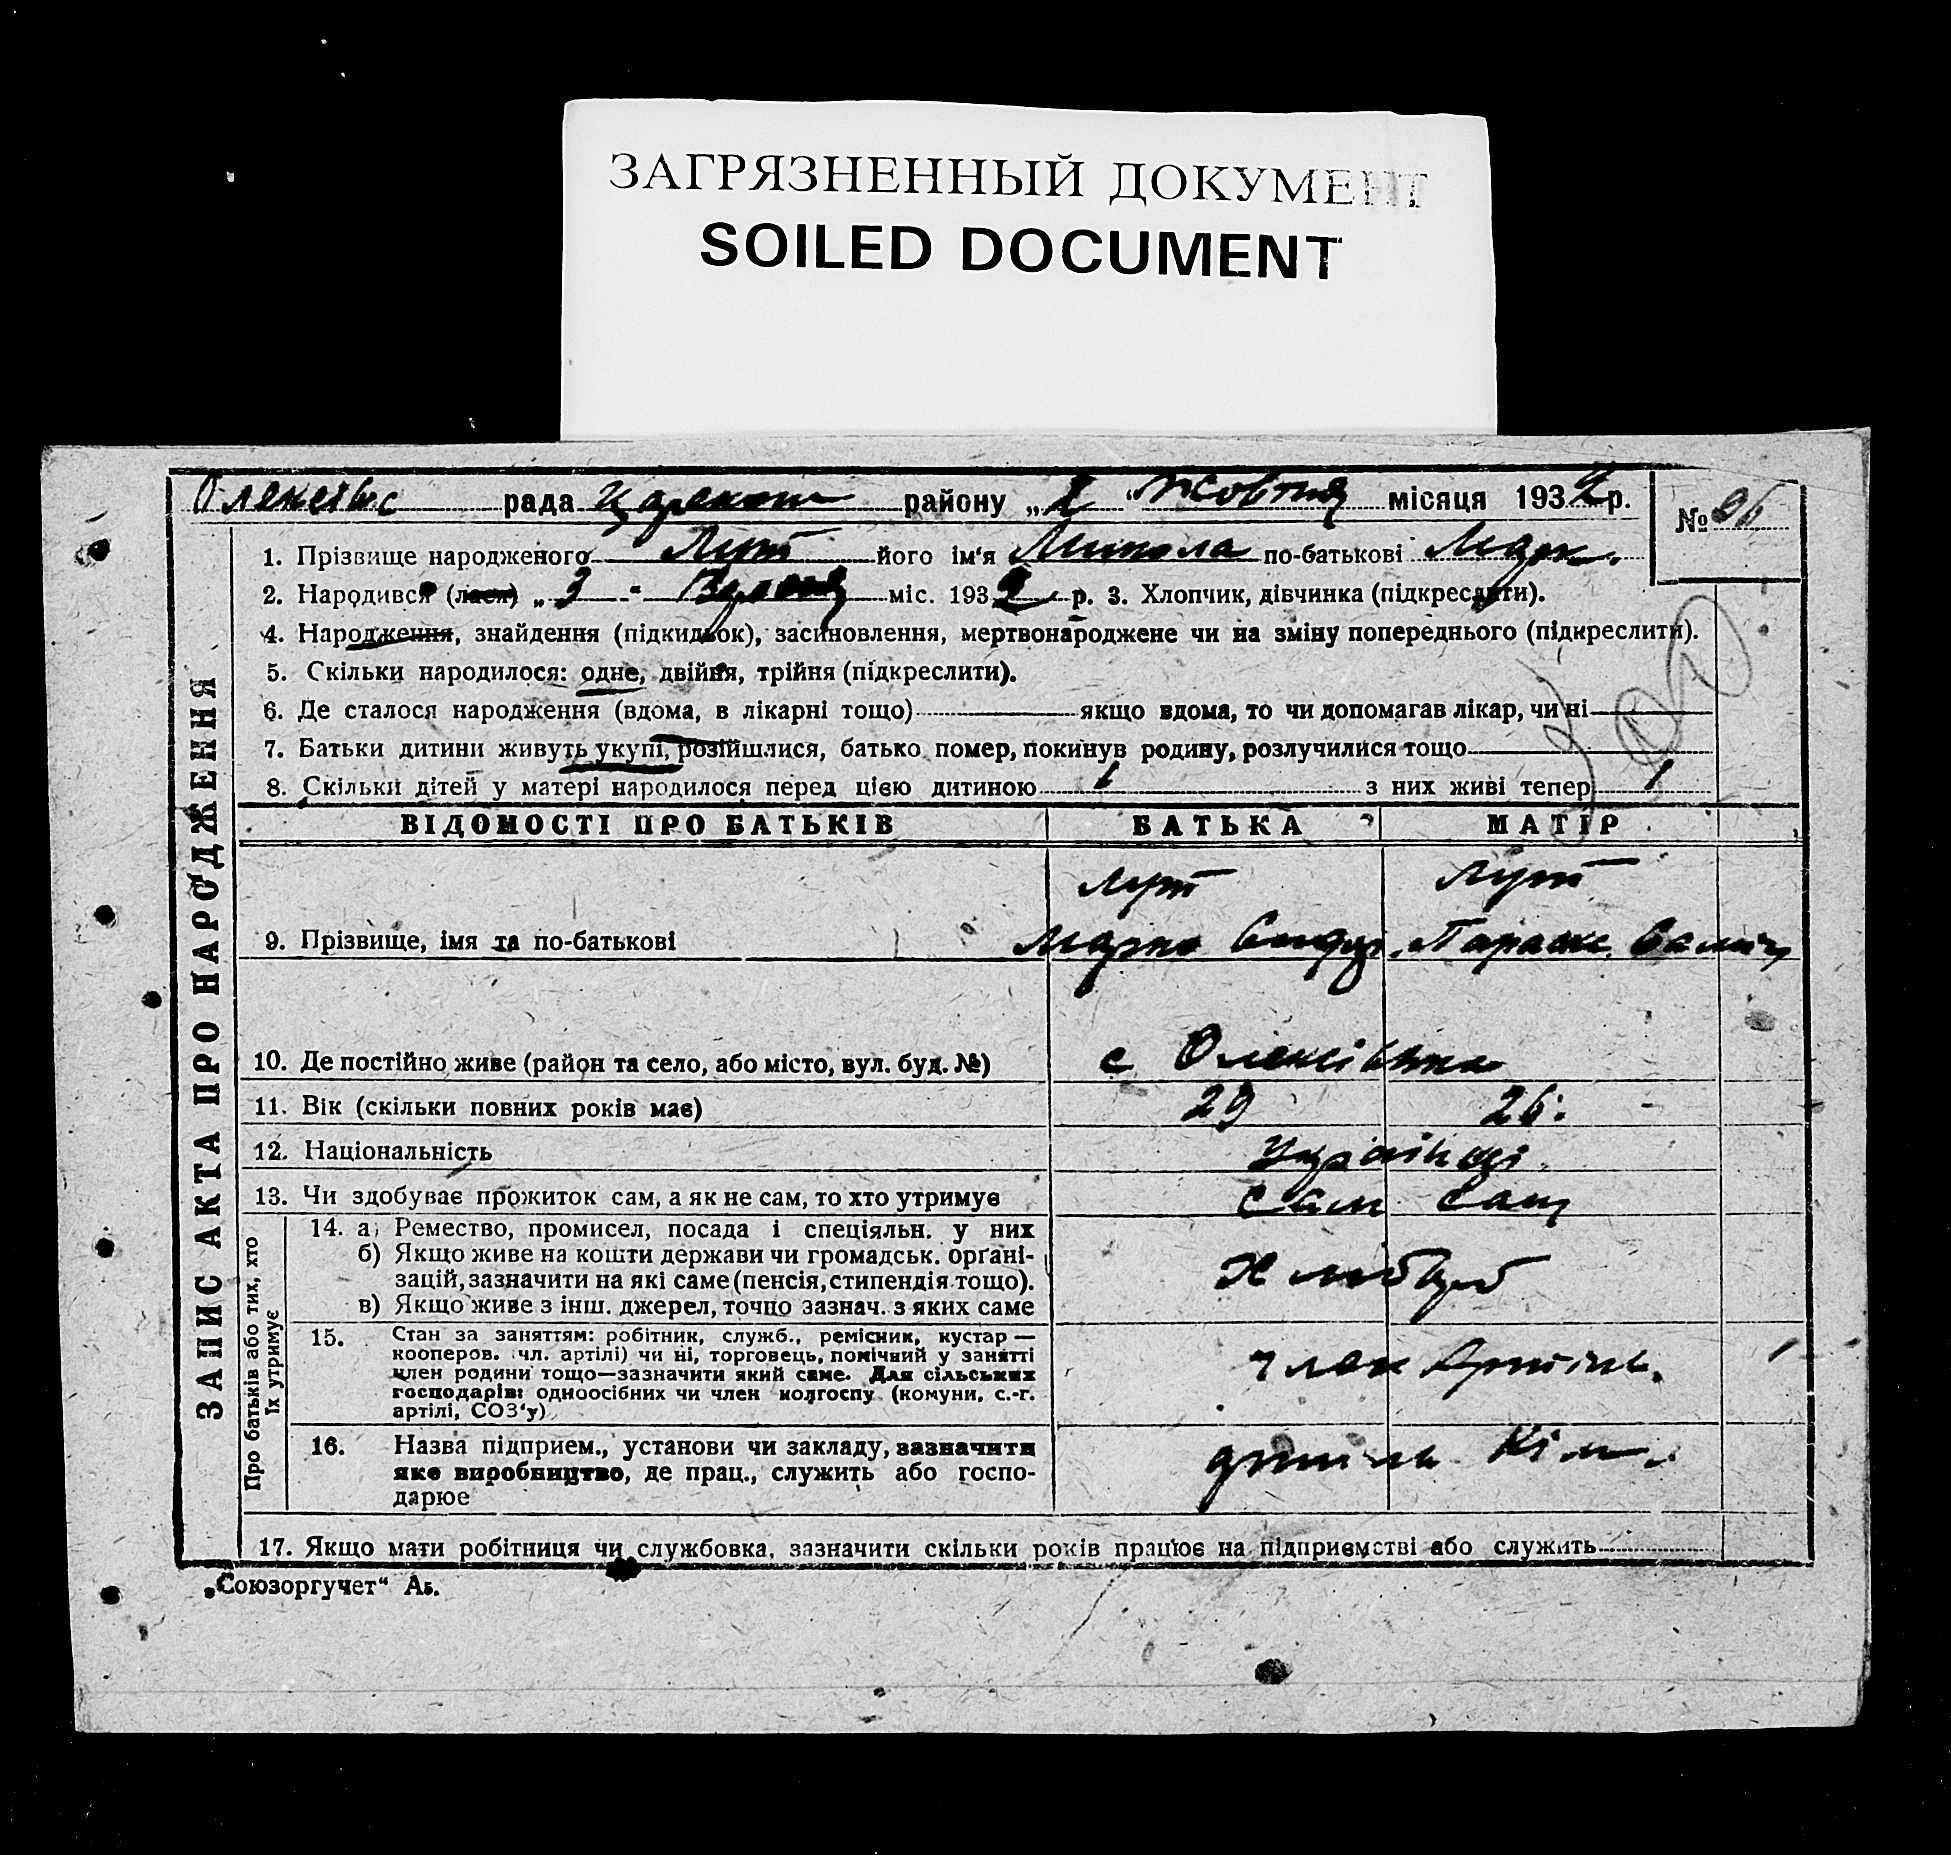 ЗАГРЯЗНЕННЫЙ ДОКУМЕНТ
SOILED DOCUMENT
рада района району „2" Жовтня місяця 1932 р.
№ 96
1. Прізвище народженого Лут його ім'я Микола по-батькові Марк.
2. Народився (лася) „3" міс. 1932 р. 3. Хлопчик, дівчинка (підкреслити).
4. Народження, знайдення (підкидьок), засиновлення, мертвонароджене чи на зміну попереднього (підкреслити).
5. Скільки народилося: одне, двійня, трійня (підкреслити).
6. Де сталося народження (вдома, в лікарні тощо) якщо вдома, то чи допомагав лікар, чи ні
7. Батьки дитини живуть укупі, розійшлися, батько помер, покинув родину, розлучилися тощо
8. Скільки дітей у матері народилося перед цією дитиною 1 з них живі тепер 1
ЗАПИС АКТА ПРО НАРОДЖЕННЯ
ВІДОМОСТІ ПРО БАТЬКІВ БАТЬКА МАТІР
Лут Лут
9. Прізвище, імя та по-батькові Марко Параск.
10. Де постійно живе (район та село, або місто, вул. буд. №) с Олексіївка
11. Вік (скільки повних років має) 29 26.
12. Національність Українці
13. Чи здобуває прожиток сам, а як не сам, то хто утримує сам сама
Про батьків або тих, хто їх утримує
14. а) Ремество, промисел, посада і спеціяльн. у них
б) Якщо живе на кошти держави чи громадськ. орґані-
зацій, зазначити на які саме (пенсія, стипендія тощо).
в) Якщо живе з інш. джерел, точно зазнач. з яких саме
Хлібороб
15. Стан за заняттям: робітник, служб., ремісник, кустар —
кооперов. (чл. артілі) чи ні, торговець, помічний у занятті
член родини тощо—зазначити який саме. Для сільських
господарів: одноосібних чи член колгоспу (комуни, с.-г.
артілі, СОЗ'у)
член Артіль.
16. Назва підприєм., установи чи закладу, зазначити
яке виробництво, де прац., служить або госпо-
дарює
артіль Кім.
17. Якщо мати робітниця чи службовка, зазначити скільки років працює на підприємстві або служить
„Союзоргучет“ Аь.